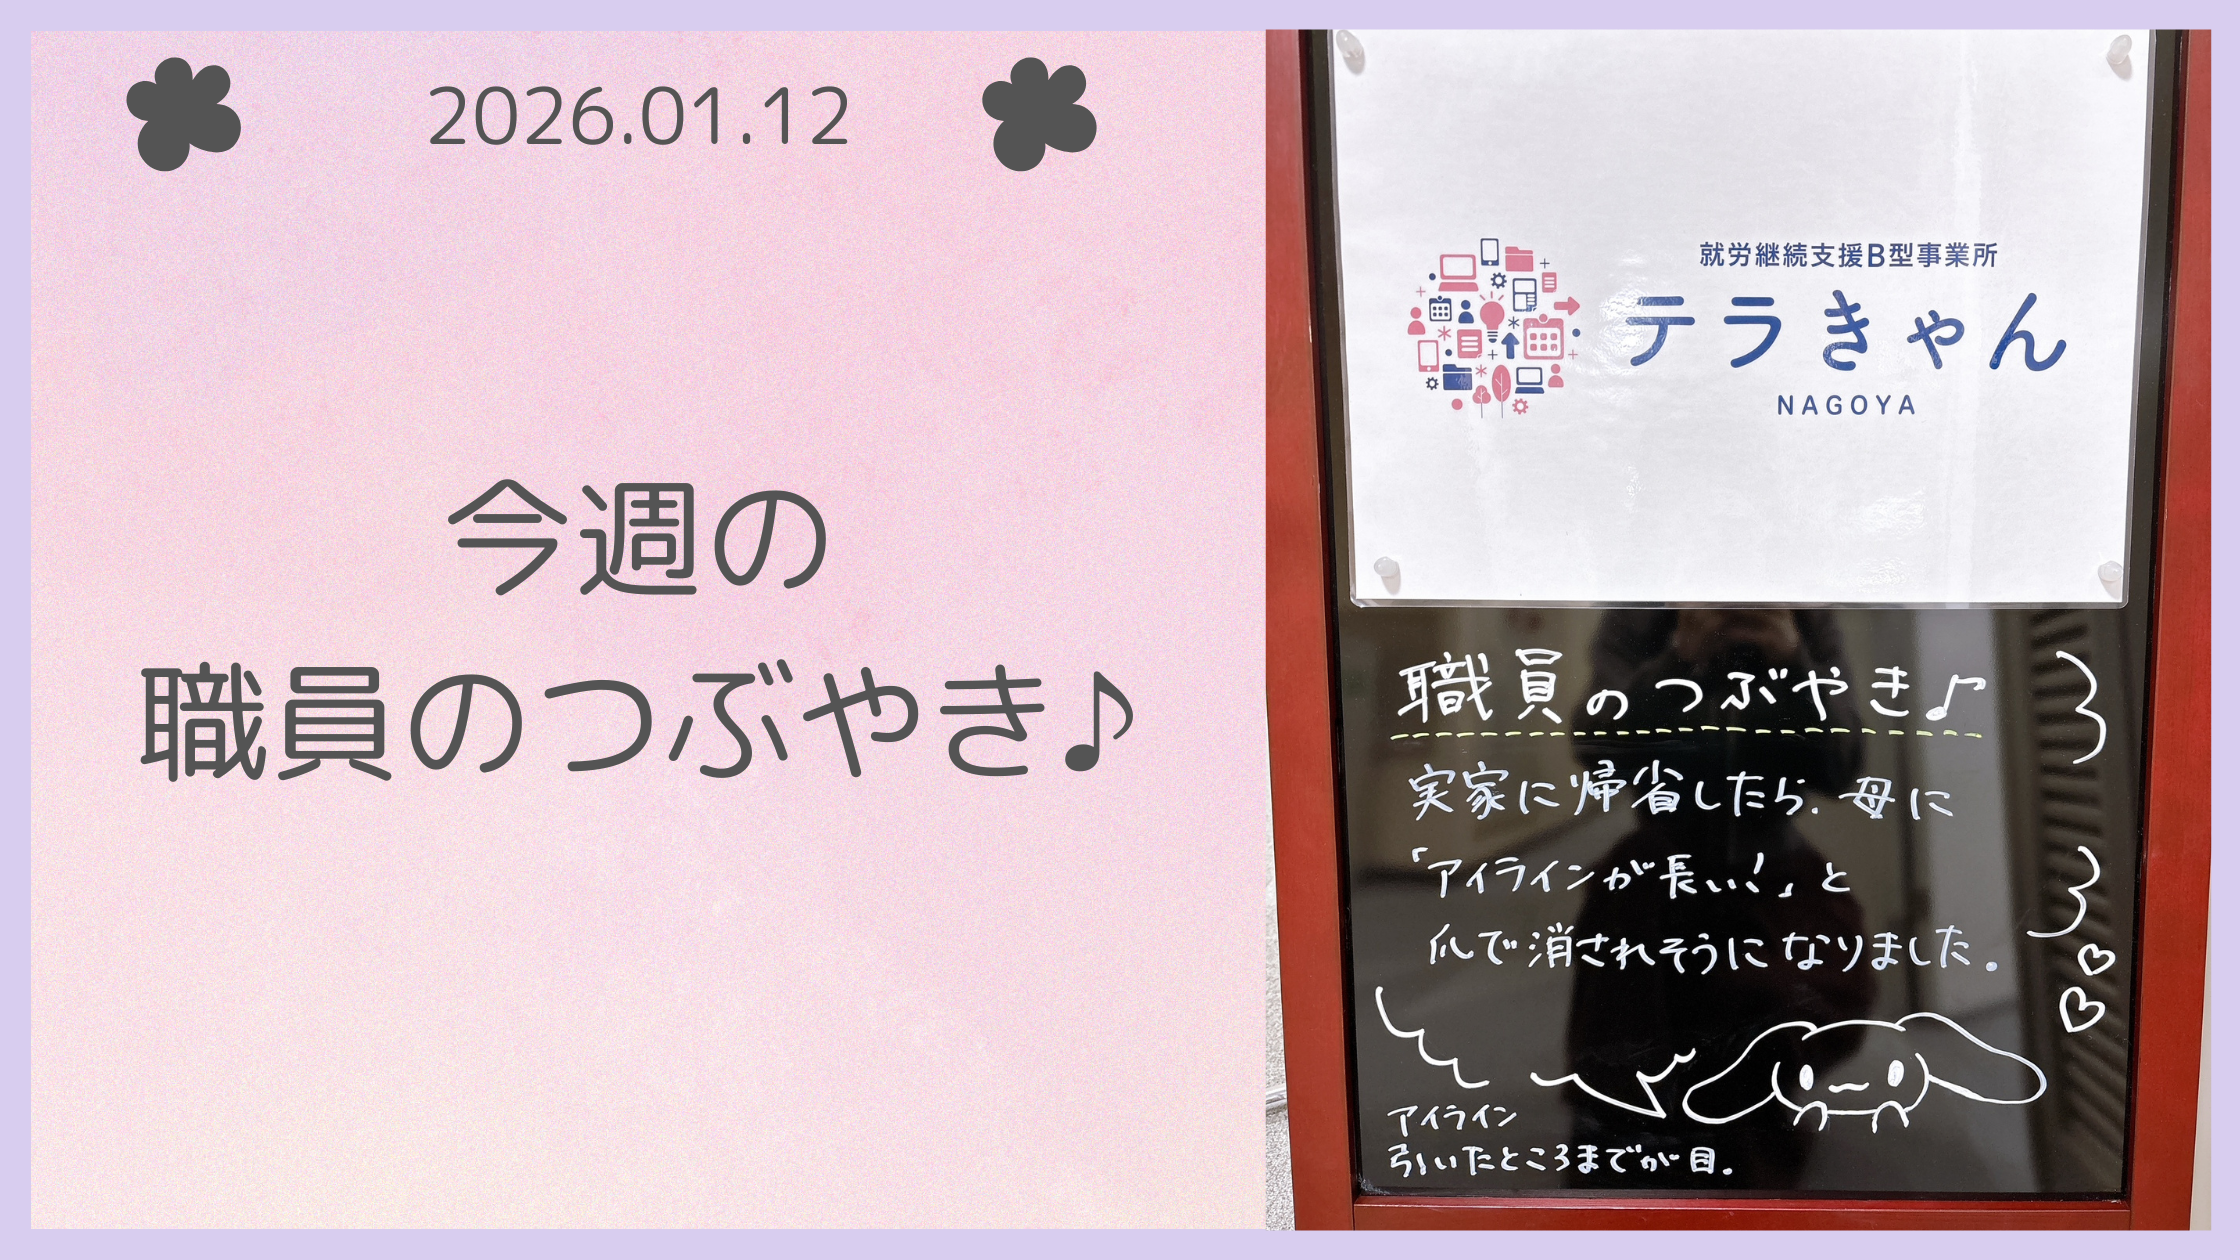 2026.01.12
今週の
職員のつぶやき♪
就労継続支援B型事業所
テラきゃん
NAGOYA
職員のつぶやき♪
実家に帰省したら、母に
「アイラインが長い!」と
爪で消されそうになりました。
アイライン
引いたところまでが目。